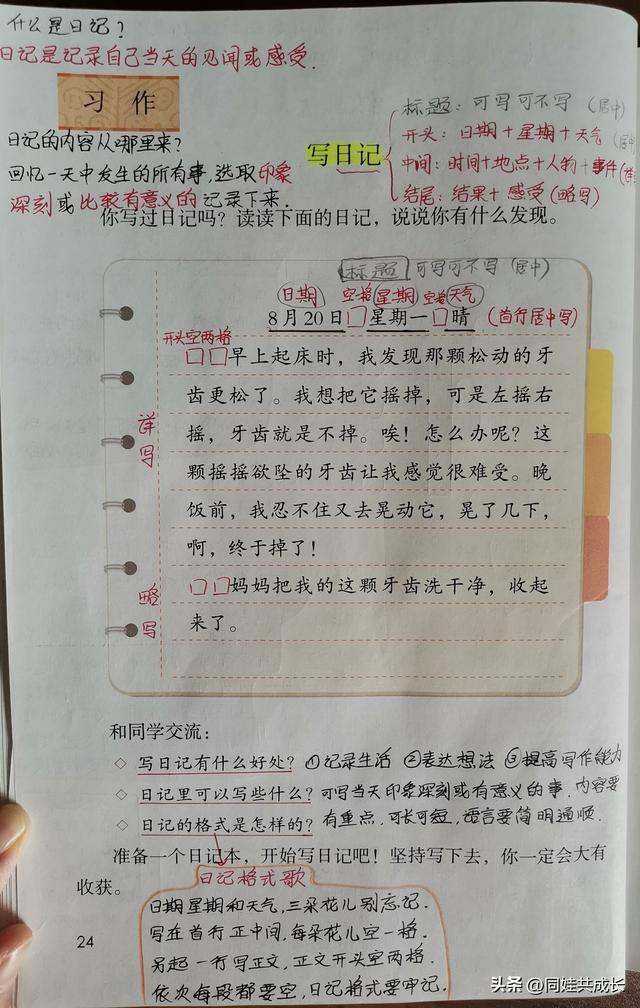 什么是日记?
日记是记录自己当天的见闻或感受.
习 作
日记的内容从哪里来?
回忆一天中发生的所有事,选取印象
深刻或比较有意义的记录下来.
写日记
标题:可写可不写(居中)
开头:日期+星期+天气(居中)
中间:时间+地点+人物+事件(详写)
结尾:结果+感受(略写)
你写过日记吗?读读下面的日记,说说你有什么发现。
标题 可写可不写(居中)
日期 空格 星期 空格 天气
8月20日□星期一□晴 (首行居中写)
开头空两格
□□早上起床时,我发现那颗松动的牙
齿更松了。我想把它摇掉,可是左摇右
摇,牙齿就是不掉。唉!怎么办呢?这
颗摇摇欲坠的牙齿让我感觉很难受。晚
饭前,我忍不住又去晃动它,晃了几下,
啊,终于掉了!
详写
□□妈妈把我的这颗牙齿洗干净,收起
来了。
略写
和同学交流:
◇ 写日记有什么好处?①记录生活 ②表达想法 ③提高写作能力
◇ 日记里可以写些什么?可写当天印象深刻或有意义的事.内容要
◇ 日记的格式是怎样的?有重点,可长可短,语言要简明通顺.
准备一个日记本,开始写日记吧!坚持写下去,你一定会大有
收获。
日记格式歌
日期星期和天气,三朵花儿别忘记.
写在首行正中间,每朵花儿空一格.
另起一行写正文,正文开头空两格.
依次每段都要空,日记格式要牢记.
24
头条 @同娃共成长